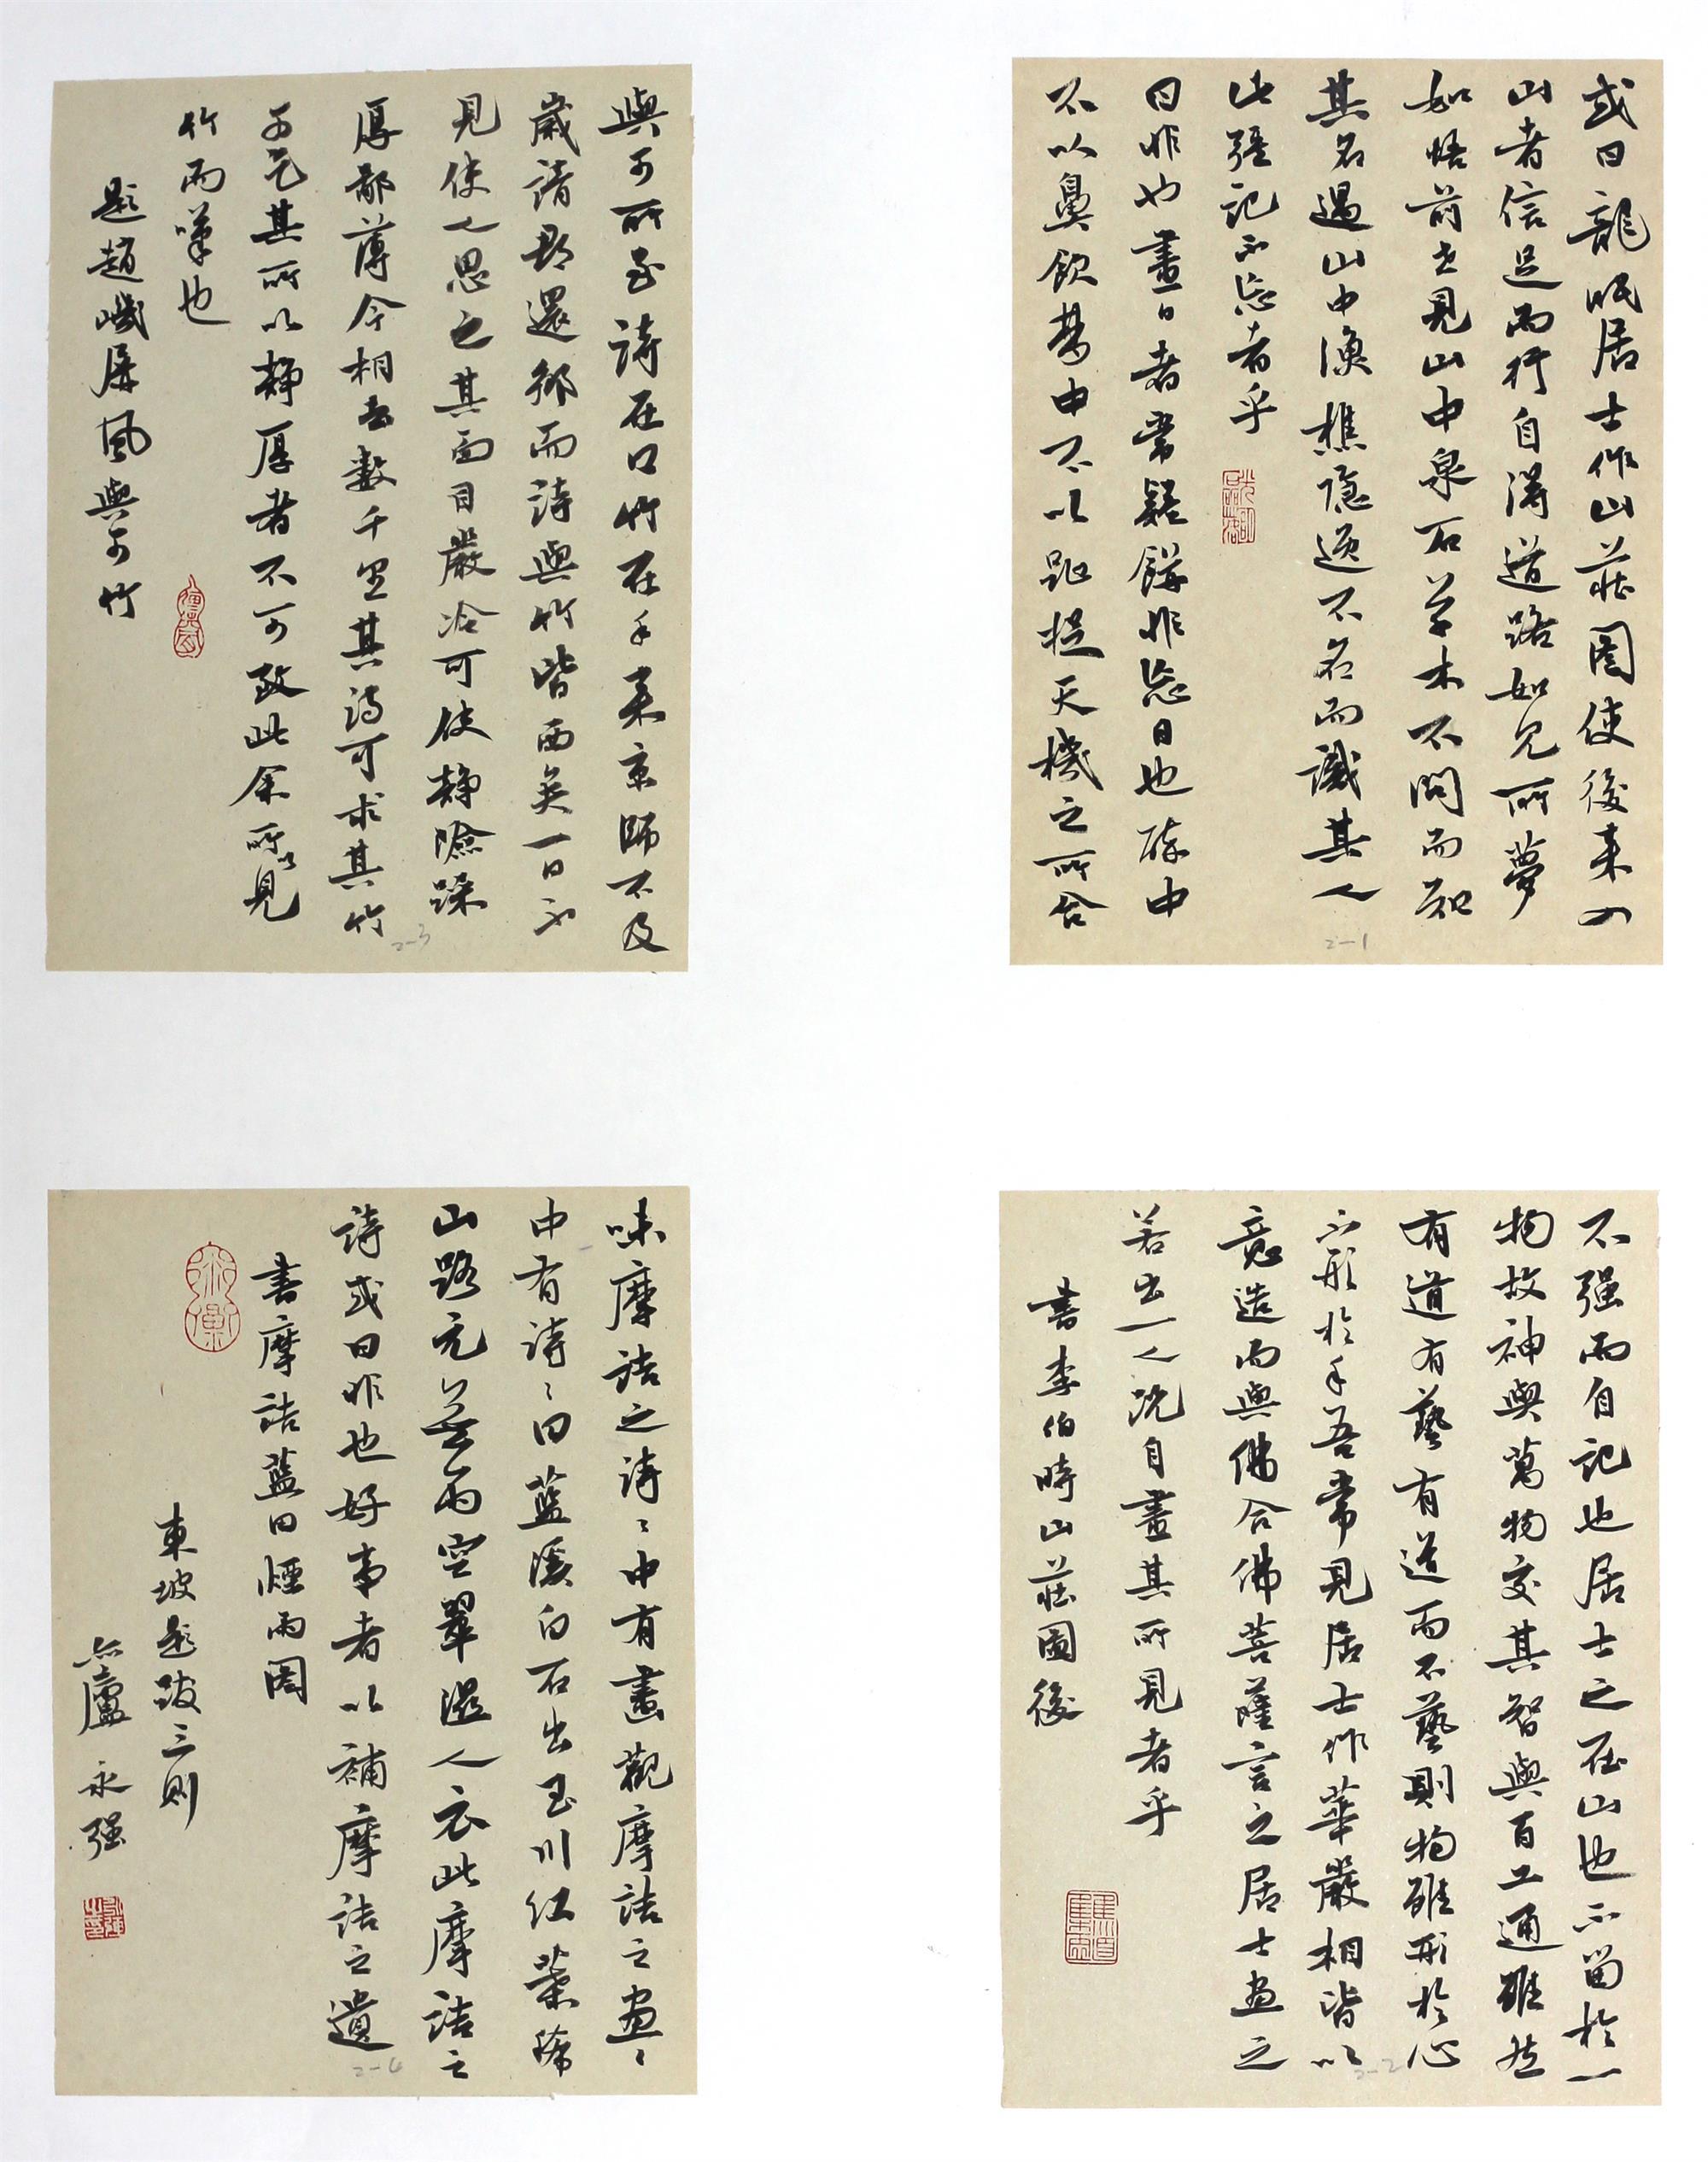 或曰龍眠居士作山莊圖使後來入
山者信足而行自得道路如見所夢
如悟前世見山中泉石草木不問而知
其名遇山中漁樵隱逸不名而識其人
此強記不忘者乎
曰非也畫日者常疑餅非忘日也醉中
不以鼻飲夢中不以趾捉天機之所合
2-1
不强而自記也居士之在山也不留於一
物故神與萬物交其智與百工通雖然
有道有藝有道而不藝則物雖形於心
不形於手吾常見居士作華嚴相皆以
意造而與佛合佛菩薩言之居士畫之
若出一人況自畫其所見者乎
書李伯時山莊圖後
2-2
與可所至詩在口竹在手來京師不及
歲請郡還鄉而詩與竹皆西矣一日不
見使人思之其面目嚴冷可使靜險躁
厚鄙薄今相去數千里其詩可求其竹
可乞其所以靜厚者不可致此余所以見
竹而嘆也
題趙屏風與可竹
2-3
味摩詰之詩〻中有畫觀摩詰之畫〻
中有詩〻曰藍溪白石出玉川紅葉稀
山路元無雨空翠濕人衣此摩詰之
詩或曰非也好事者以補摩詰之遺
書摩詰藍田煙雨圖
東坡題跋三則
廬永强
2-4